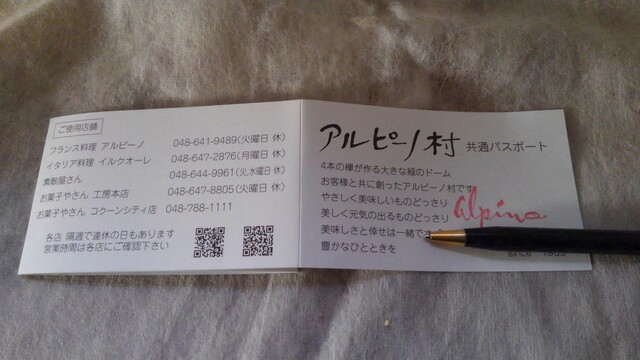 ご使用店舗
フランス料理 アルピーノ 048-641-9489(火曜日 休)
イタリア料理 イルクオーレ 048-647-2876(月曜日 休)
素敵屋さん 048-644-9961(火水曜日 休)
お菓子やさん 工房本店 048-647-8805(火曜日 休)
お菓子やさん コクーンシティ店 048-788-1111
各店 隔週で連休の日もあります
営業時間は各店にご確認下さい
アルピーノ村 共通パスポート
4本の欅が作る大きな緑のドーム
お客様と共に創ったアルピーノ村です
やさしく美味しいものどっさり
美しく元気の出るものどっさり
美味しさと倖せは一緒です
豊かなひとときを
alpino
SINCE 1969